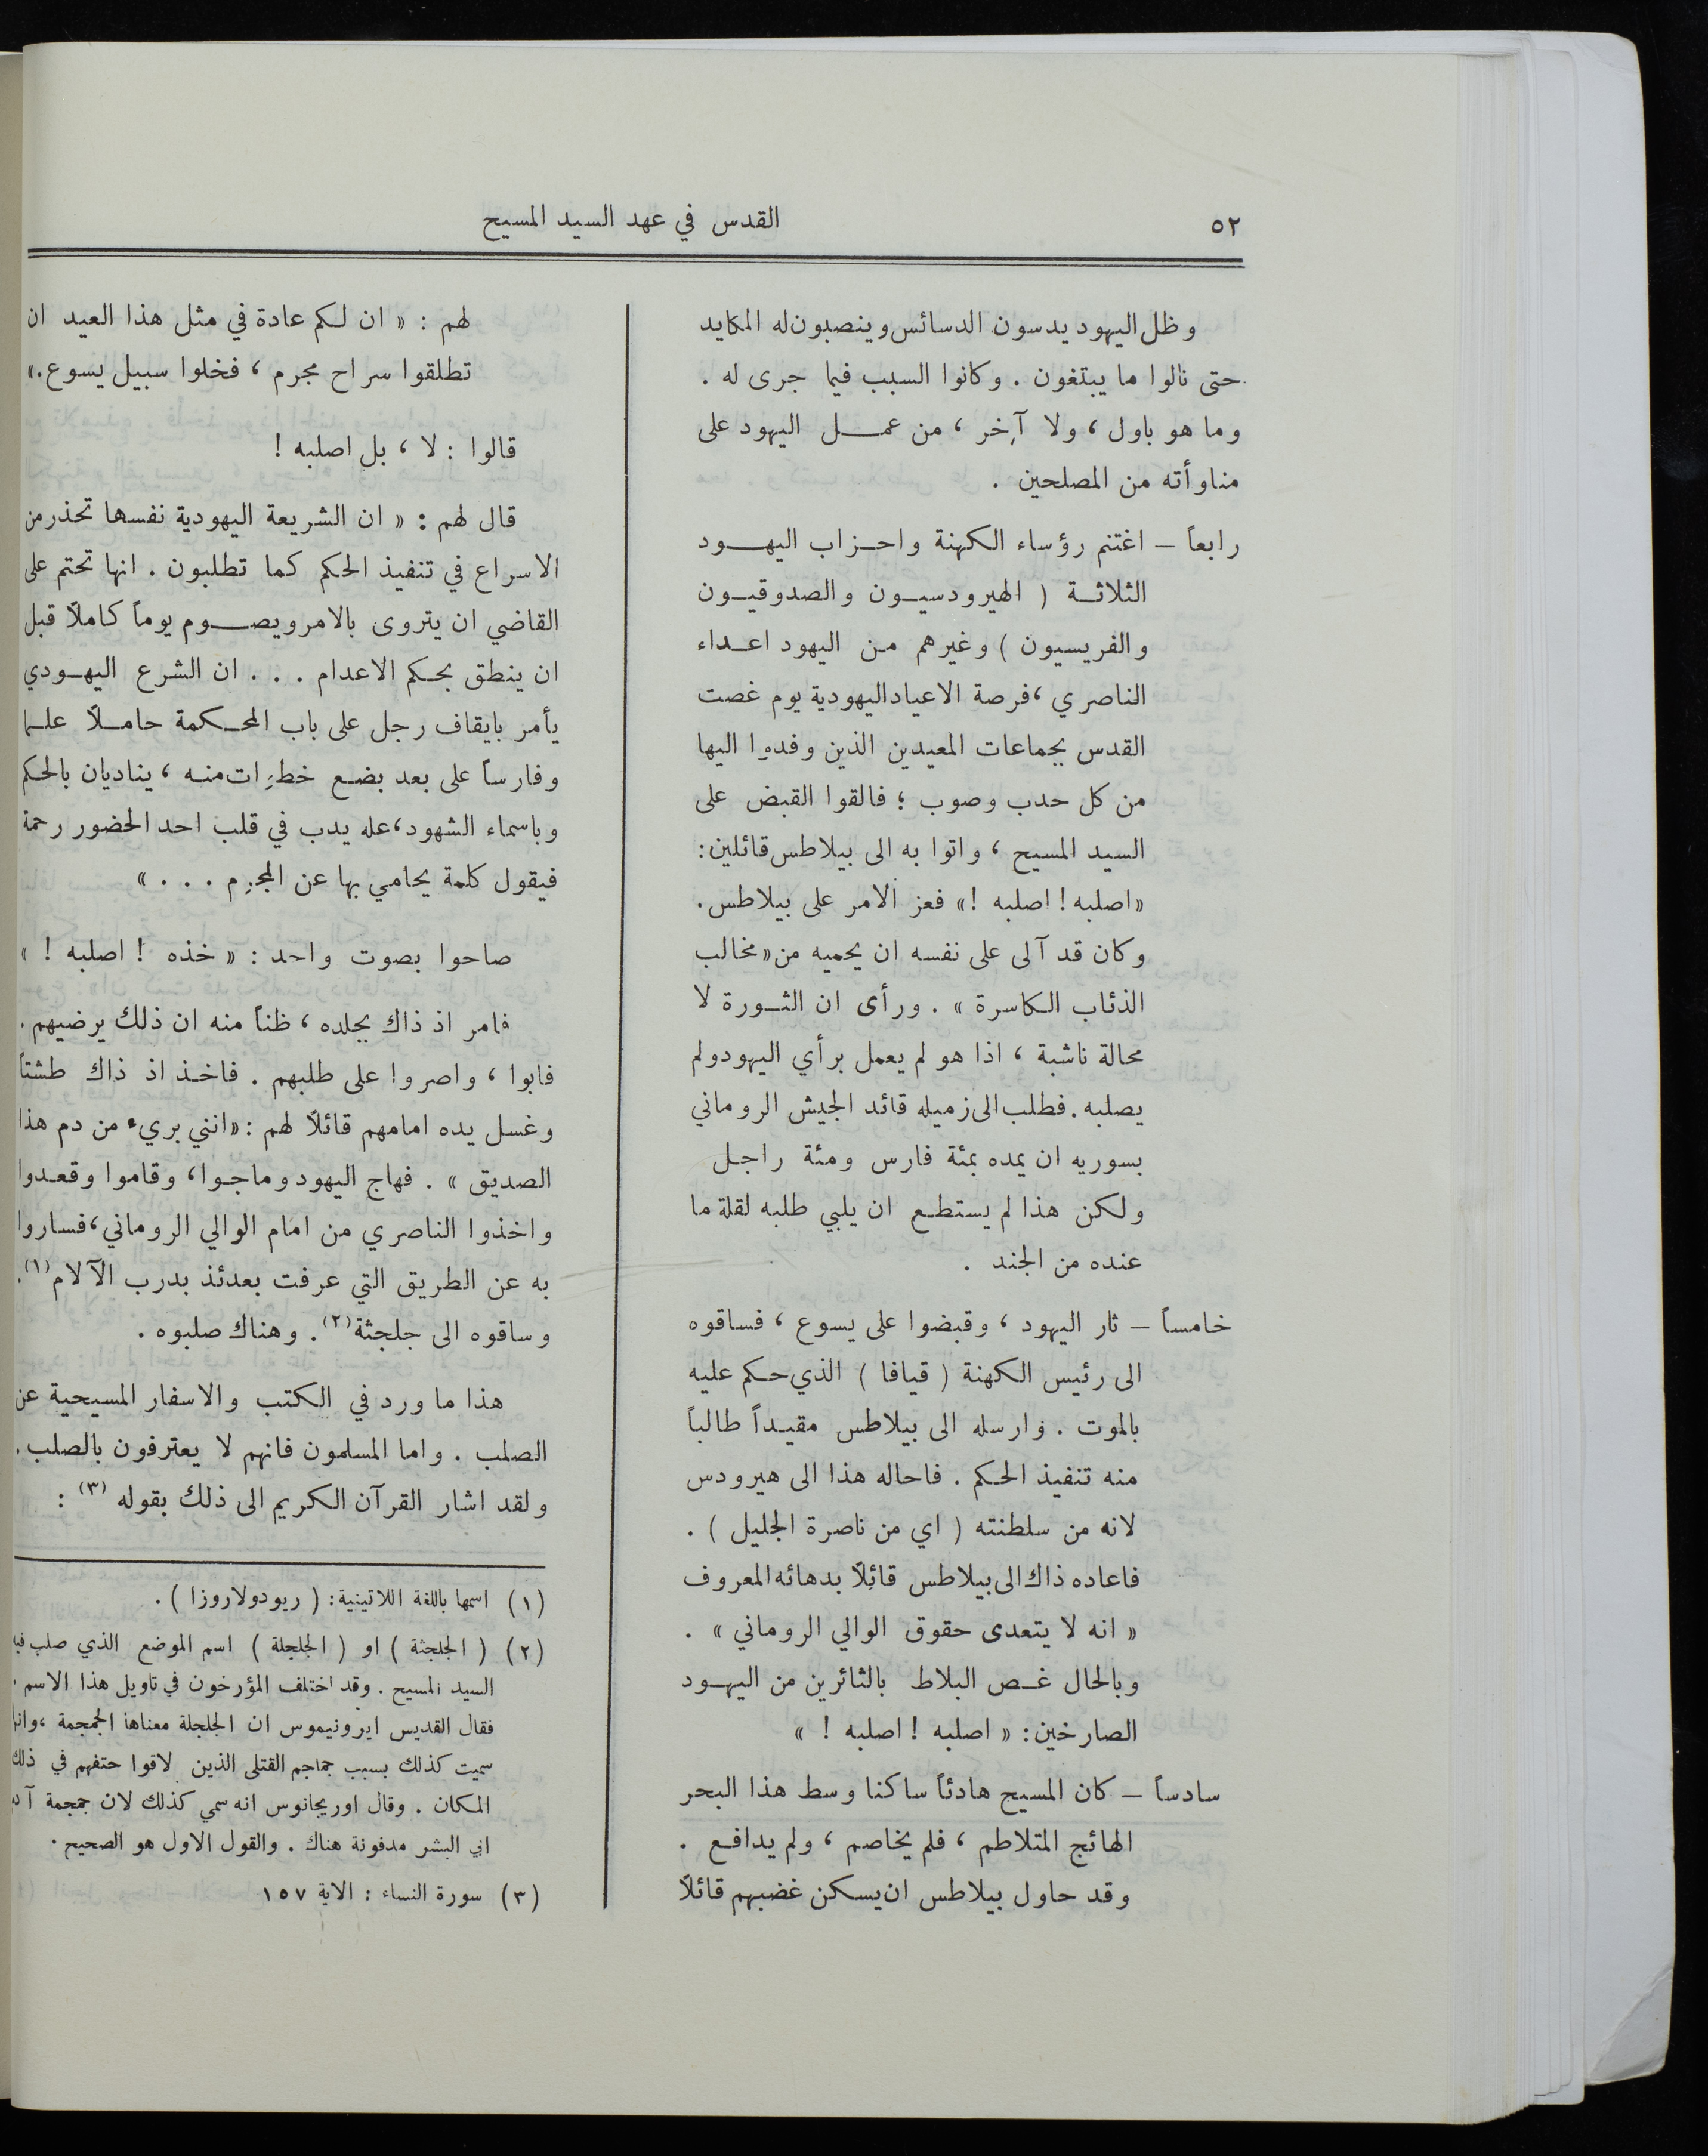 ٥٢
القدس في عهد السيد المسيح
وظل اليهود يدسون الدسائس وينصبون له المكايد
حتى نالوا ما يبتغون . وكانوا السبب فيما جرى له .
وما هو باول ، ولا آخر ، من عمل اليهود على
مناوأته من المصلحين .
رابعاً – اغتنم رؤساء الكهنة واحزاب اليهود
الثلاثة ( الهيرودسيون والصدوقيون
والفريسيون ) وغيرهم من اليهود اعداء
الناصري ، فرصة الاعياد اليهودية يوم غصت
القدس بجماعات المعيدين الذين وفدوا اليها
من كل حدب وصوب ؛ فالقوا القبض على
السيد المسيح ، واتوا به الى بيلاطس قائلين :
« اصلبه ! اصلبه ! » فعز الامر على بيلاطس .
وكان قد آلى على نفسه ان يحميه من « مخالب
الذئاب الكاسرة » . ورأى ان الثورة لا
محالة ناشبة ، اذا هو لم يعمل برأي اليهود ولم
يصلبه . فطلب الى زميله قائد الجيش الروماني
بسوريه ان يمده بمئة فارس ومئة راجل
ولكن هذا لم يستطع ان يلبي طلبه لقلة ما
عنده من الجند .
خامساً – ثار اليهود ، وقبضوا على يسوع ، فساقوه
الى رئيس الكهنة ( قيافا ) الذي حكم عليه
بالموت . وارسله الى بيلاطس مقيداً طالباً
منه تنفيذ الحكم . فاحاله هذا الى هيرودس
لانه من سلطنته ( اي من ناصرة الجليل ) .
فاعاده ذاك الى بيلاطس قائلاً بدهائه المعروف
« انه لا يتعدى حقوق الوالي الروماني » .
وبالحال غص البلاط بالثائرين من اليهود
الصارخين : « اصلبه ! اصلبه ! »
سادساً – كان المسيح هادئاً ساكنا وسط هذا البحر
الهائج المتلاطم ، فلم يخاصم ، ولم يدافع .
وقد حاول بيلاطس ان يسكن غضبهم قائلاً
لهم : « ان لكم عادة في مثل هذا العيد ان
تطلقوا سراح مجرم ، فخلوا سبيل يسوع . »
قالوا : لا ، بل اصلبه !
قال لهم : « ان الشريعة اليهودية نفسها تحذر من
الاسراع في تنفيذ الحكم كما تطلبون . انها تحتم على
القاضي ان يتروى بالامر ويصوم يوماً كاملاً قبل
ان ينطق بحكم الاعدام . . . ان الشرع اليهودي
يأمر بايقاف رجل على باب المحكمة حاملاً علما
وفارساً على بعد بضع خطوات منه ، يناديان بالحكم
وباسماء الشهود ، عله يدب في قلب احد الحضور رحمة
فيقول كلمة يحامي بها عن المجرم . . . »
صاحوا بصوت واحد : « خذه ! اصلبه ! »
فامر اذ ذاك بجلده ، ظناً منه ان ذلك يرضيهم .
فابوا ، واصروا على طلبهم . فاخذ اذ ذاك طشتاً
وغسل يده امامهم قائلاً لهم : « انني بريء من دم هذا
الصديق » . فهاج اليهود وماجوا ، وقاموا وقعدوا
واخذوا الناصري من امام الوالي الروماني ، فساروا
به عن الطريق التي عرفت بعدئذ بدرب الآلام (١) .
وساقوه الى جلجثة (٢) . وهناك صلبوه .
هذا ما ورد في الكتب والاسفار المسيحية عن
الصلب . واما المسلمون فانهم لا يعترفون بالصلب .
ولقد اشار القرآن الكريم الى ذلك بقوله (٣) :
(١) اسمها باللغة اللاتينية : ( ريودولاروزا ) .
(٢) ( الجلجثة ) او ( الجلجلة ) اسم الموضع الذي صلب فيه
السيد المسيح . وقد اختلف المؤرخون في تاويل هذا الاسم .
فقال القديس ايرونيموس ان الجلجلة معناها الجمجمة ، وانها
سميت كذلك بسبب جماجم القتلى الذين لاقوا حتفهم في ذلك
المكان . وقال اوريجانوس انه سمي كذلك لان جمجمة آدم
ابي البشر مدفونة هناك . والقول الاول هو الصحيح .
(٣) سورة النساء : الاية ١٥٧